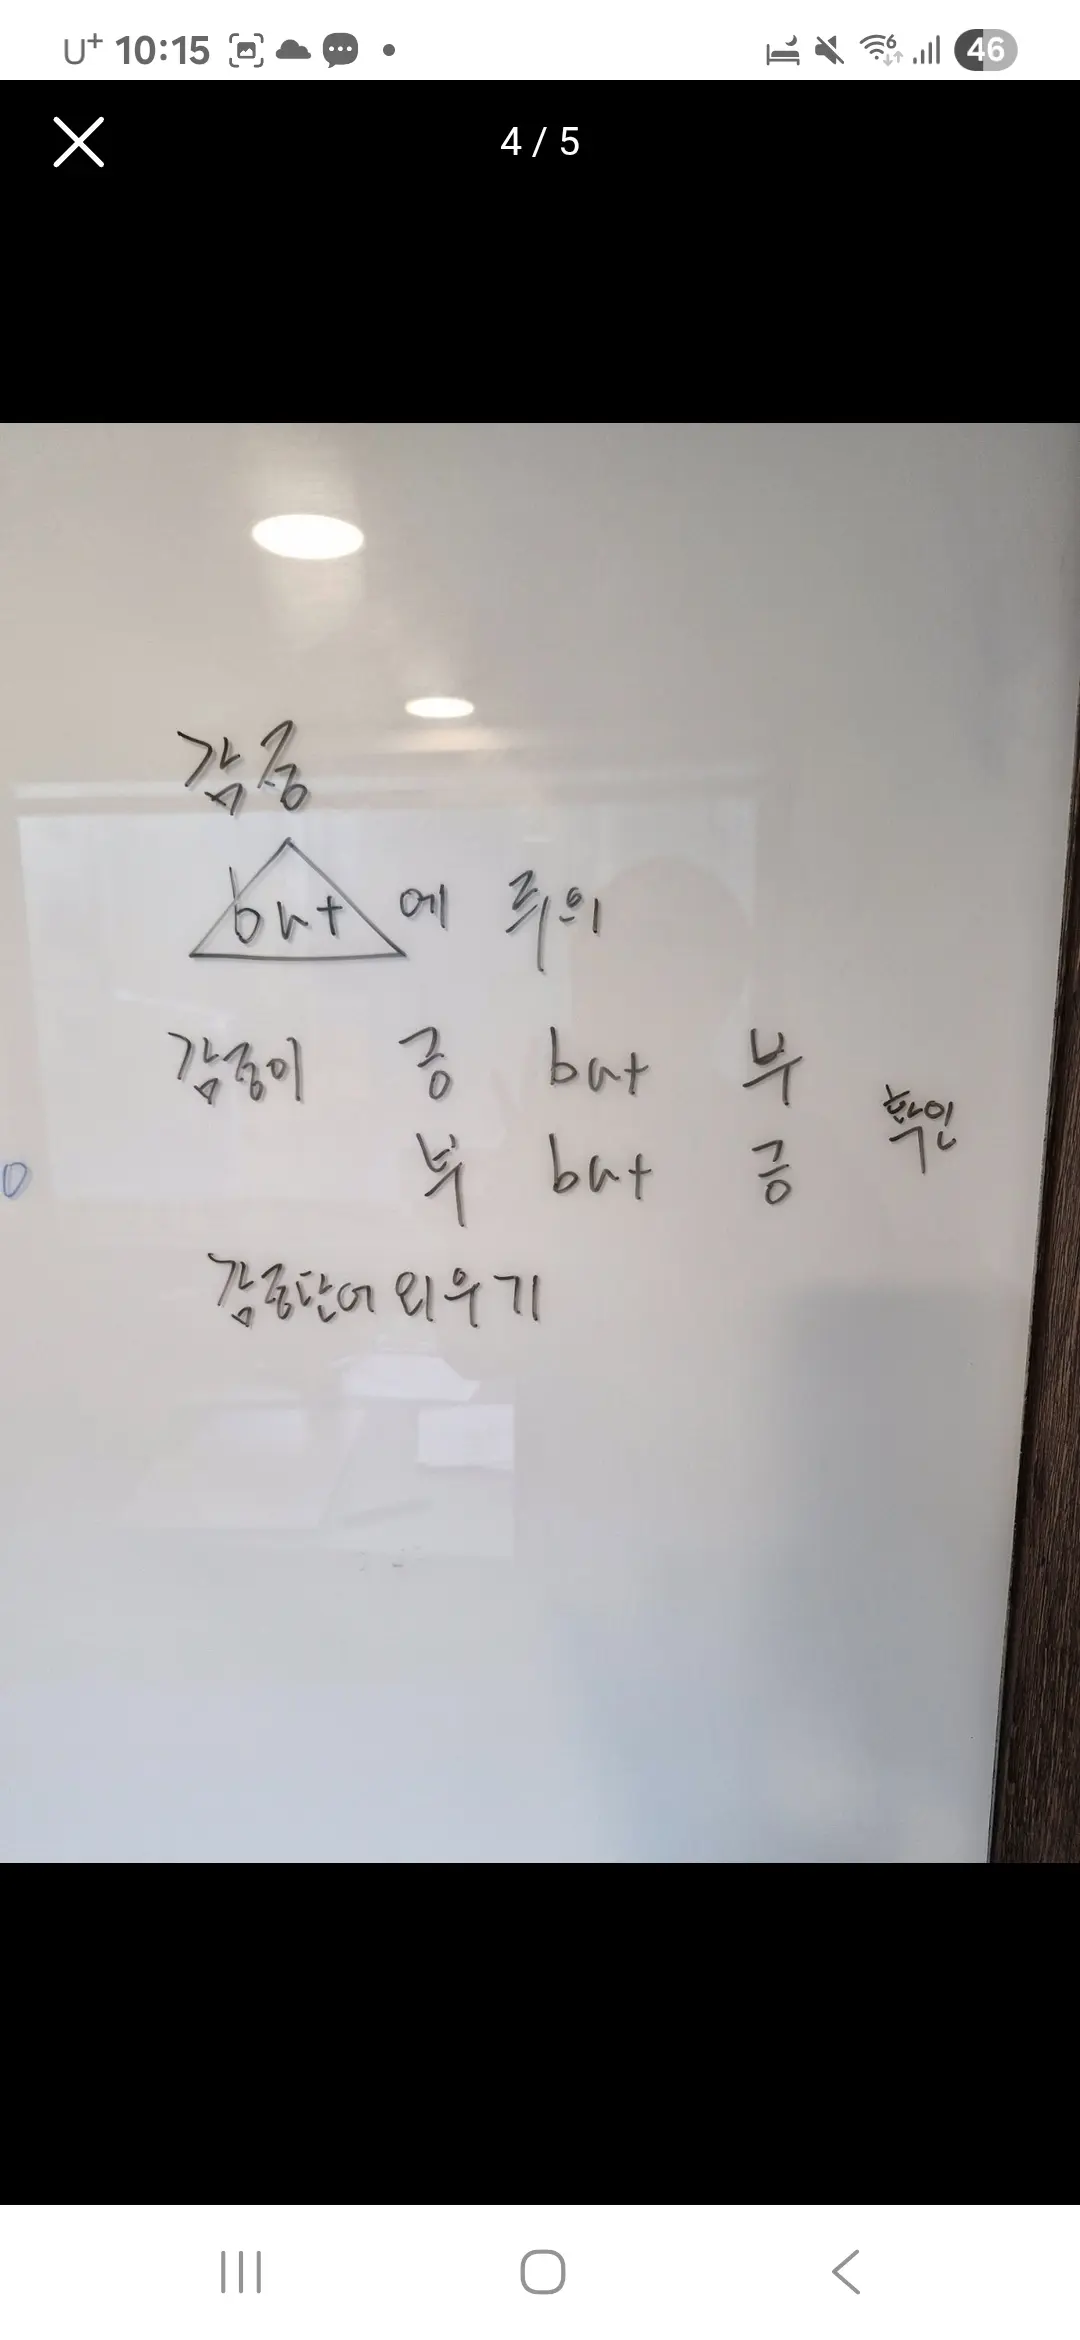 U+ 10:15 46
4 / 5
감정
but 에 주의
감정이 긍 but 부
확인
부 but 긍
감정단어 외우기